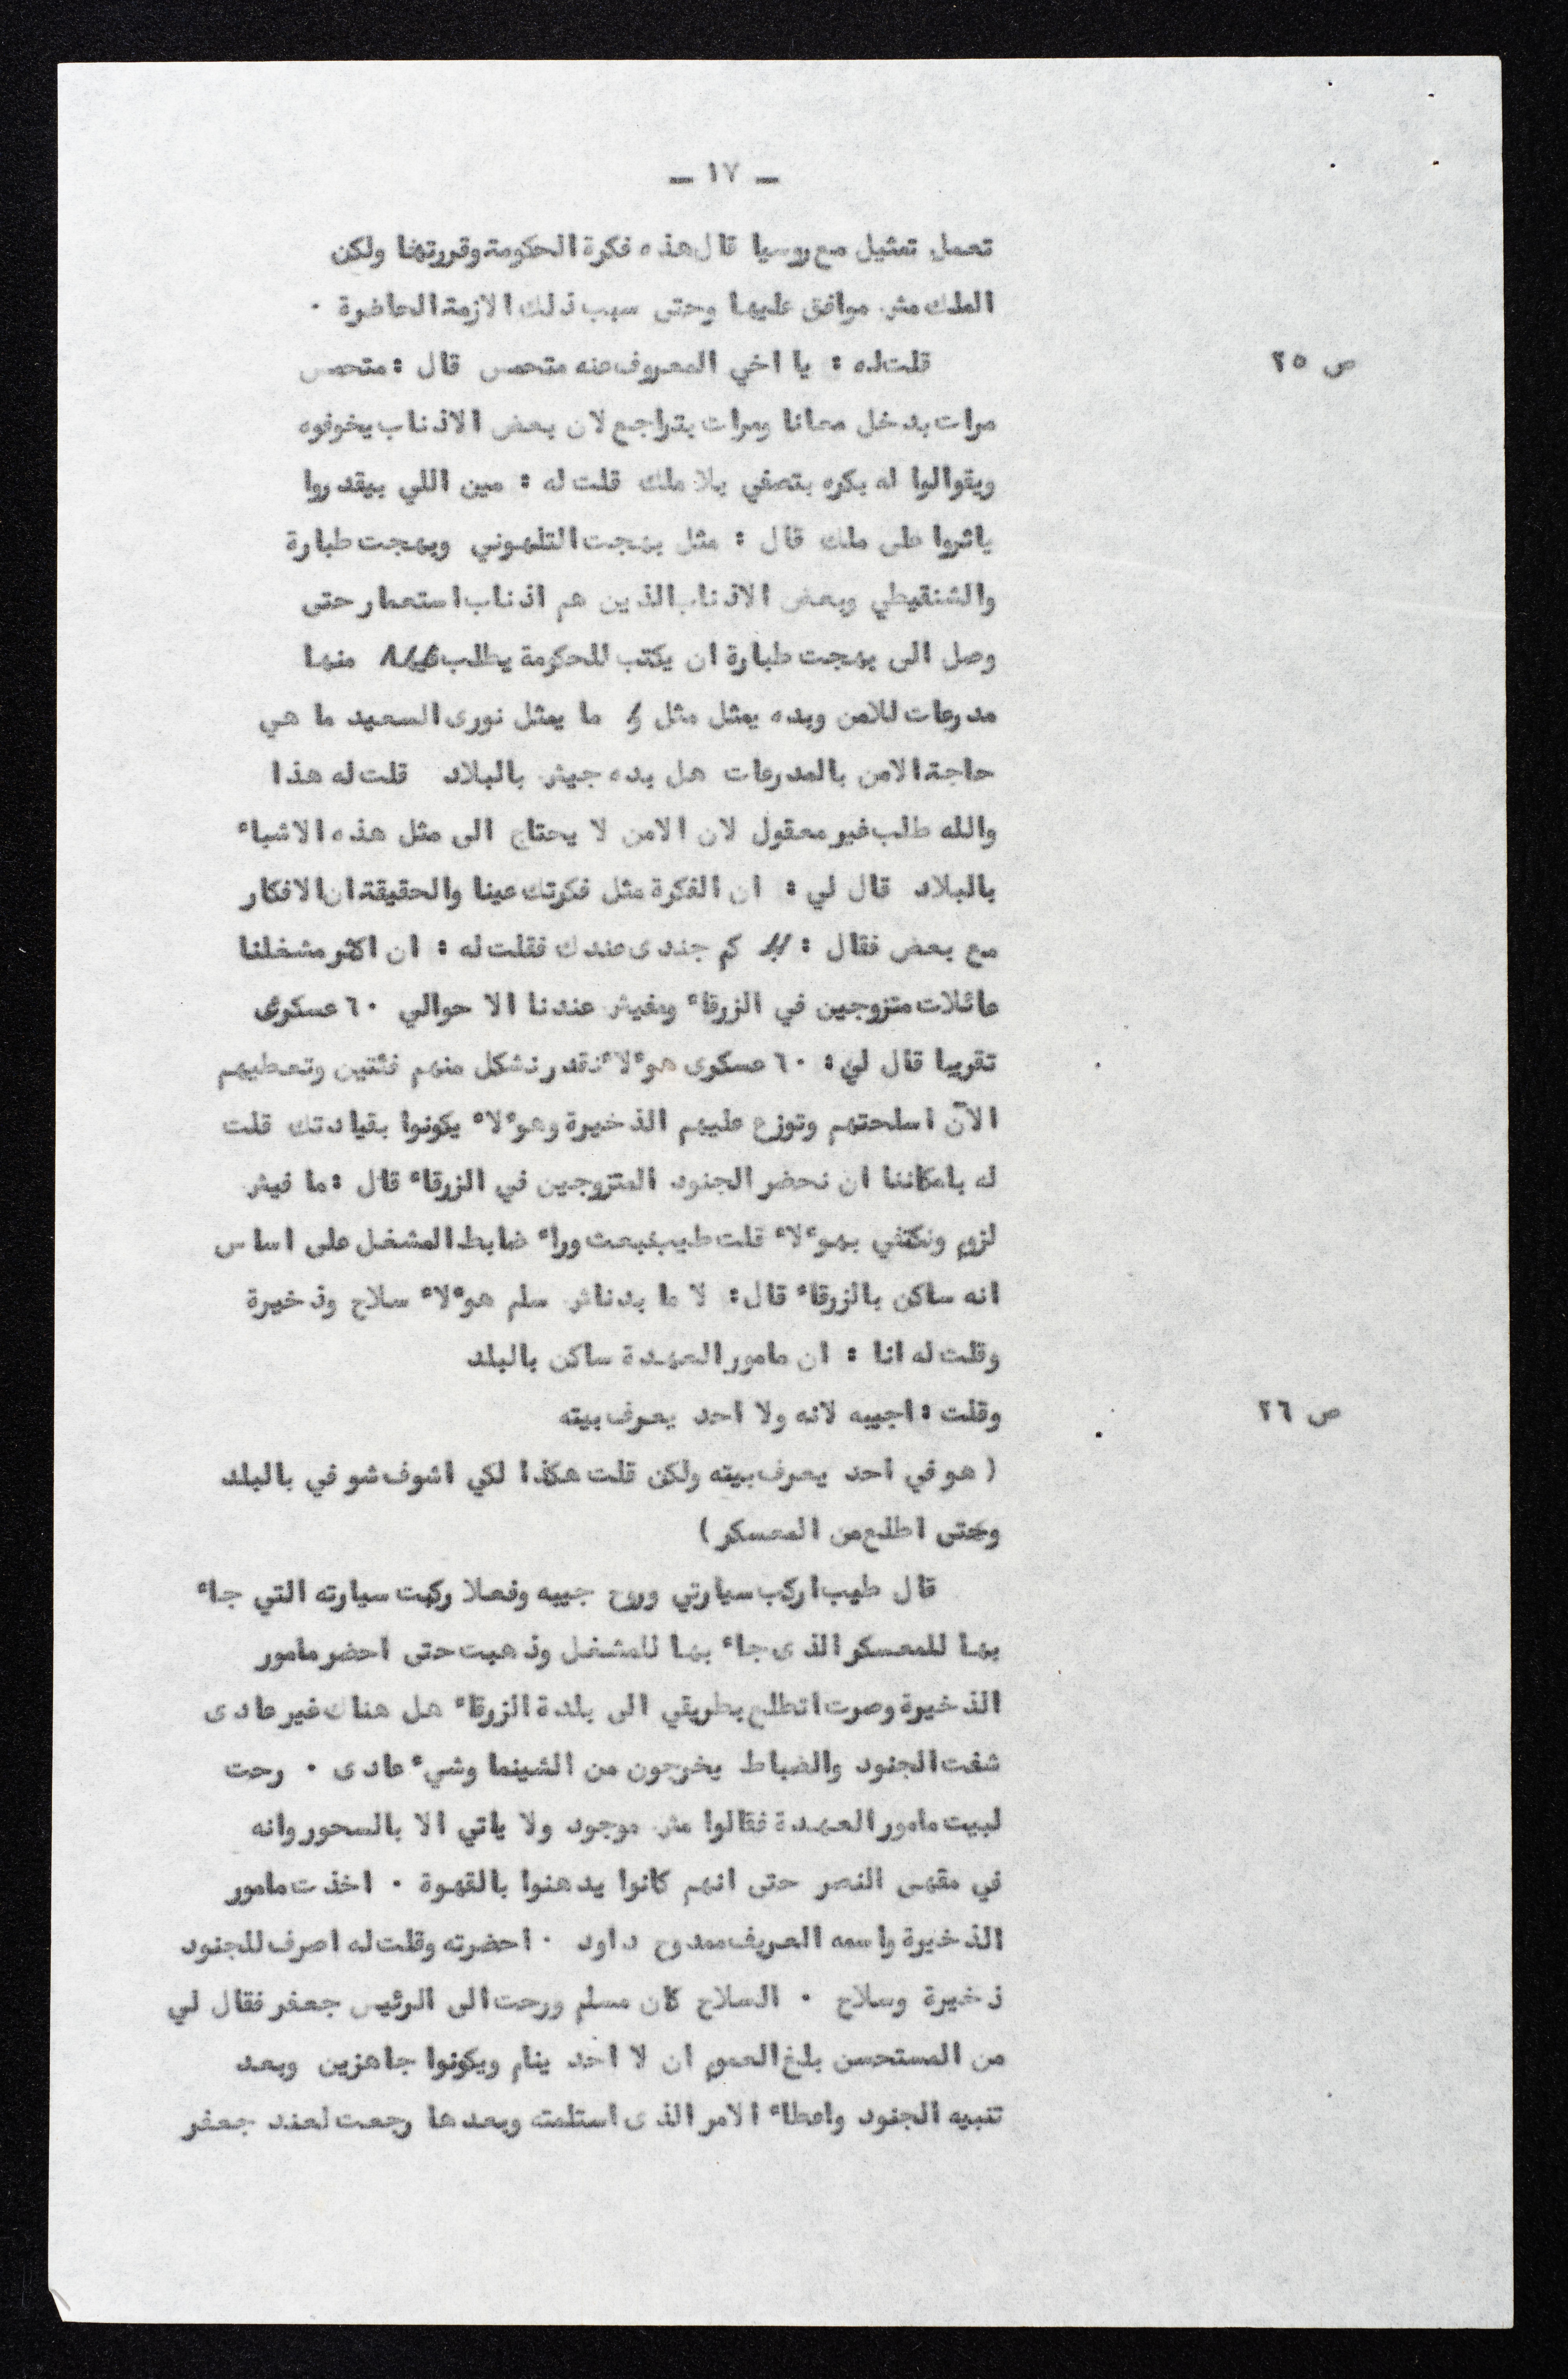 ـ ١٧ ـ
تعمل تمثيل مع روسيا قال هذه فكرة الحكومة وقررتها ولكن
الملك مش موافق عليها وحتى سبب ذلك الازمة الحاضرة ٠
ص ٢٥
قلت له : يا اخي المعروف عنه متحمس قال : متحمس
مرات بدخل معانا ومرات بتراجع لان بعض الاذناب يخوفوه
ويقوالوا له بكره بتصفي بلا ملك قلت له : مين اللي بيقدروا
ياثروا على ملك قال : مثل بهجت التلهوني وبهجت طبارة
والشنقيطي وبعض الاذناب الذين هم اذناب استعمار حتى
وصل الى بهجت طبارة ان يكتب للحكومة يطلب منها
مدرعات للامن وبده يمثل مثل ما يمثل نورى السعيد ما هي
حاجة الامن بالمدرعات هل بده جيش بالبلاد قلت له هذا
والله طلب غير معقول لان الامن لا يحتاج الى مثل هذه الاشياء
بالبلاد قال لي : ان الفكرة مثل فكرتك عينا والحقيقة ان الافكار
مع بعض فقال : كم جندى عندك فقلت له : ان اكثر مشغلنا
عائلات متزوجين في الزرقاء ومفيش عندنا الا حوالي ٦٠ عسكرى
تقريبا قال لي : ٦٠ عسكرى هوءلاء نقدر نشكل منهم فئتين وتعطيهم
الآن اسلحتهم وتوزع عليهم الذخيرة وهوءلاء يكونوا بقيادتك قلت
له بامكاننا ان نحضر الجنود المتزوجين في الزرقاء قال : ما فيش
لزوم ونكتفي بهوءلاء قلت طيب نبعث وراء ضابط المشغل على اساس
انه ساكن بالزرقاء قال : لا ما بدناش سلم هوءلاء سلاح وذخيرة
وقلت له انا : ان مامور العهدة ساكن بالبلد
ص ٢٦
وقلت : اجيبه لانه ولا احد يعرف بيته
( هو في احد يعرف بيته ولكن قلت هكذا لكي اشوف شو في بالبلد
وحتى اطلع من المعسكر )
قال طيب اركب سيارتي وروح جيبه وفعلا ركبت سيارته التي جاء
بها للمعسكر الذى جاء بها للمشغل وذهبت حتى احضر مامور
الذخيرة وصرت اتطلع بطريقي الى بلدة الزرقاء هل هناك غير عادى
شفت الجنود والضباط يخرجون من الشينما وشيء عادى ٠ رحت
لبيت مامور العهدة فقالوا مش موجود ولا ياتي الا بالسحور وانه
في مقهى النصر حتى انهم كانوا يدهنوا بالقهوة ٠ اخذت مامور
الذخيرة واسمه العريف ممدوح داود ٠ احضرته وقلت له اصرف للجنود
ذخيرة وسلاح ٠ السلاح كان مسلم ورحت الى الرئيس جعفر فقال لي
من المستحسن بلغ العموم ان لا احد ينام ويكونوا جاهزين وبعد
تنبيه الجنود واعطاء الامر الذى استلمته وبعدها رجعت لعند جعفر